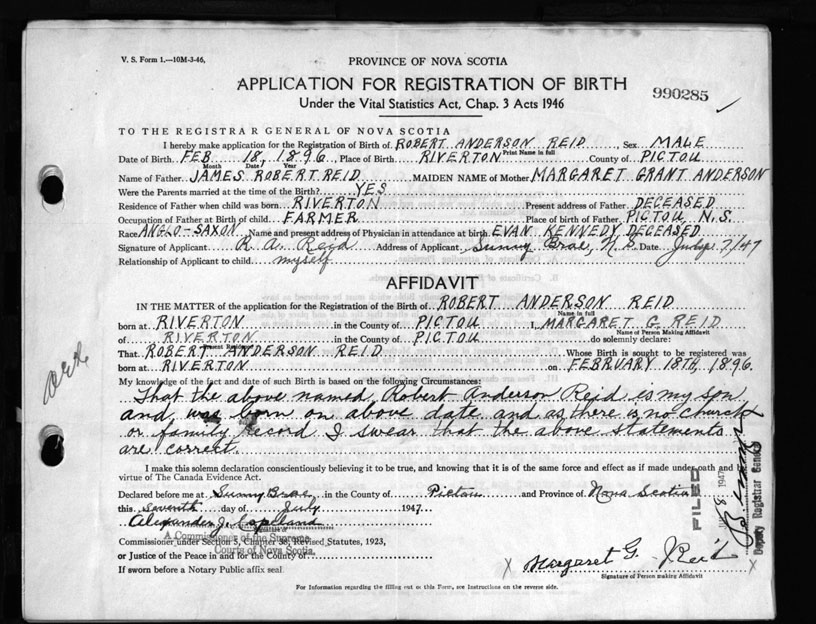 V. S. Form 1.—10M-3-46,
PROVINCE OF NOVA SCOTIA
APPLICATION FOR REGISTRATION OF BIRTH
990285
Under the Vital Statistics Act, Chap. 3 Acts 1946
TO THE REGISTRAR GENERAL OF NOVA SCOTIA
I hereby make application for the Registration of Birth of ROBERT ANDERSON REID, Sex MALE
Print Name in full
Date of Birth FEB 18, 1896, Place of Birth RIVERTON County of PICTOU
Month Date Year
Name of Father JAMES ROBERT REID MAIDEN NAME of Mother MARGARET GRANT ANDERSON
Were the Parents married at the time of the Birth? YES
Residence of Father when child was born RIVERTON Present address of Father DECEASED
Occupation of Father at Birth of child FARMER Place of birth of Father PICTOU N.S.
Race ANGLO-SAXON Name and present address of Physician in attendance at birth EVAN KENNEDY DECEASED
Signature of Applicant R. A. Reid Address of Applicant Sunny Brae, N.S. Date July 7/47
Relationship of Applicant to child myself
AFFIDAVIT
IN THE MATTER of the application for the Registration of the Birth of ROBERT ANDERSON REID
Name in full
born at RIVERTON in the County of PICTOU I, MARGARET G. REID
Name of Person Making Affidavit
of RIVERTON in the County of PICTOU do solemnly declare:
Present Residence
That ROBERT ANDERSON REID Whose Birth is sought to be registered was
born at RIVERTON on FEBRUARY 18TH, 1896.
My knowledge of the fact and date of such Birth is based on the following Circumstances:
That the above named Robert Anderson Reid is my son
and was born on above date and as there is no church
or family record I swear that the above statements
are correct.
I make this solemn declaration conscientiously believing it to be true, and knowing that it is of the same force and effect as if made under oath and by
virtue of The Canada Evidence Act.
Declared before me at Sunny Brae in the County of Pictou and Province of Nova Scotia
this seventh day of July 1947
Alexander J. Copeland
A Commissioner of the Supreme
Commissioner under Section 5, Chapter 38, Revised Statutes, 1923,
Courts of Nova Scotia.
or Justice of the Peace in and for the County of
If sworn before a Notary Public affix seal
X Margaret G. Reid X
Signature of Person making Affidavit
FILED
8 1947
Deputy Registrar General
For Information regarding the filling out of this Form, see Instructions on the reverse side.